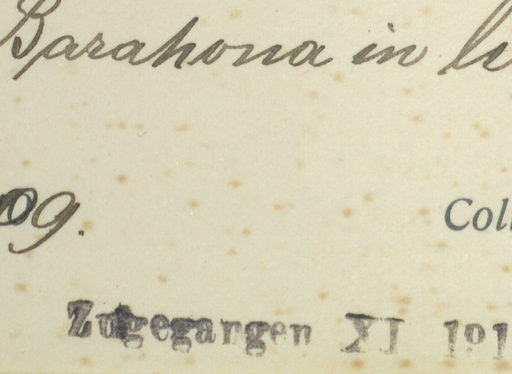 Barahona in li
09.
Coll
Zugegangen XI 191